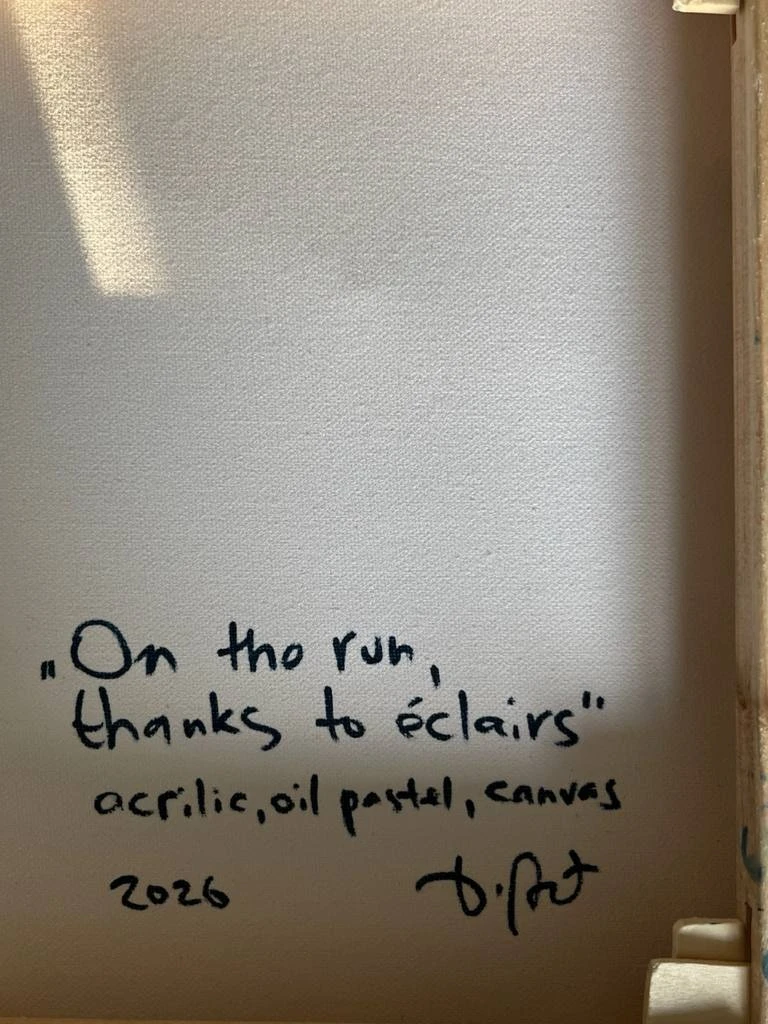 „On the run,
thanks to éclairs"
acrilic, oil pastel, canvas
2026